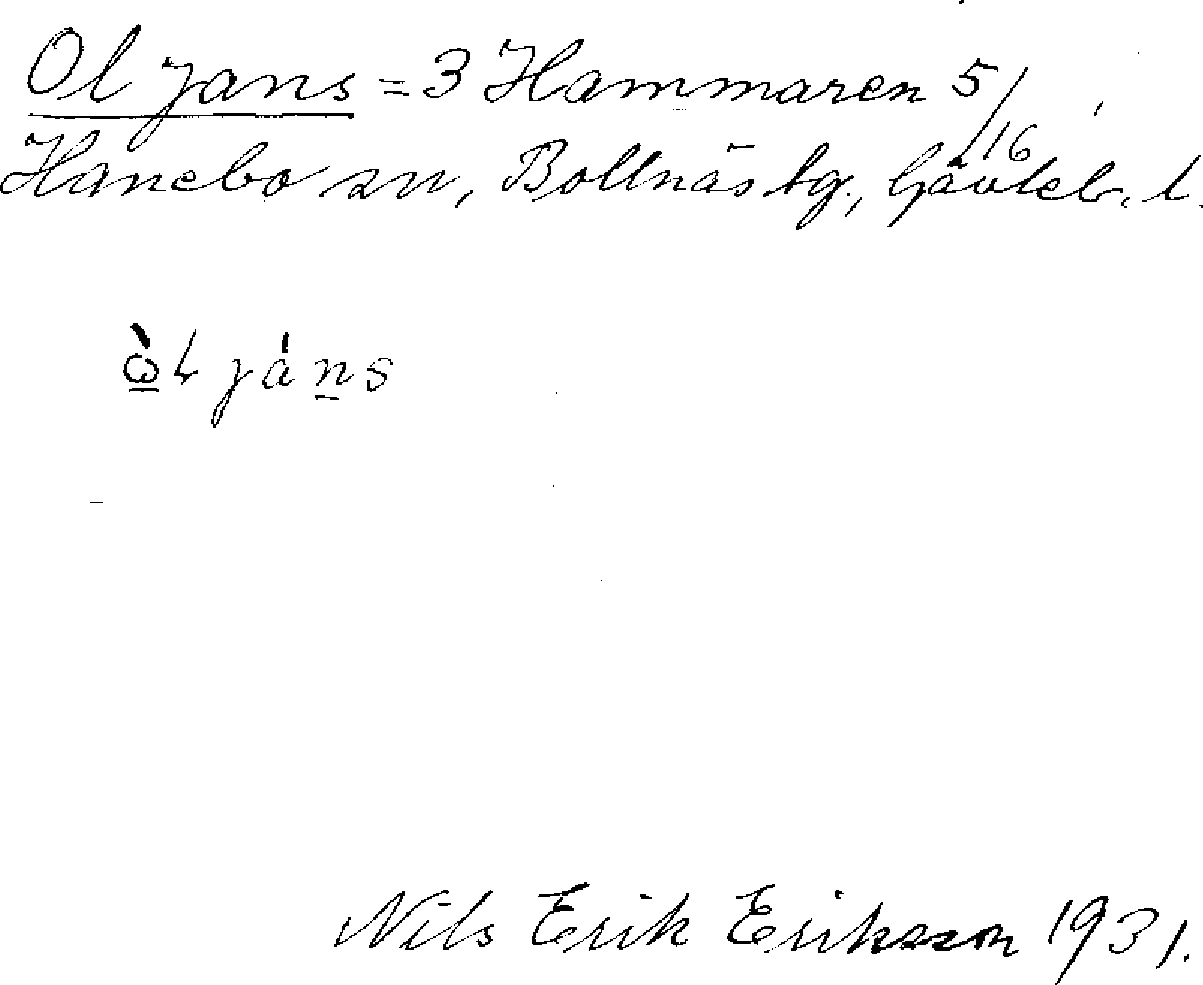 Ol jans = 3 Hammaren 5/16
Hanebo sn, Bollnäs tg., Gävleb. l.
ὼł jáns
Nils Erik Eriksson 1931.